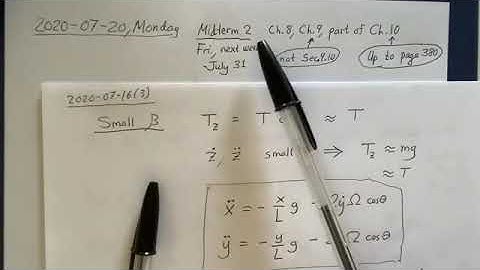 2020-07-20, Monday Midterm 2 Ch.8, Ch.9, part of Ch.10
Fri, next
July 31 not Sec 9.10 Up to page 380
2020-07-16(3)
Small β T_z = T ≈ T
ż, z̈ small ⇒ T_z ≈ mg
≈ T
ẍ = - x/L g - 2ẏ Ω cosθ
ÿ = - y/L g - Ω cosθ